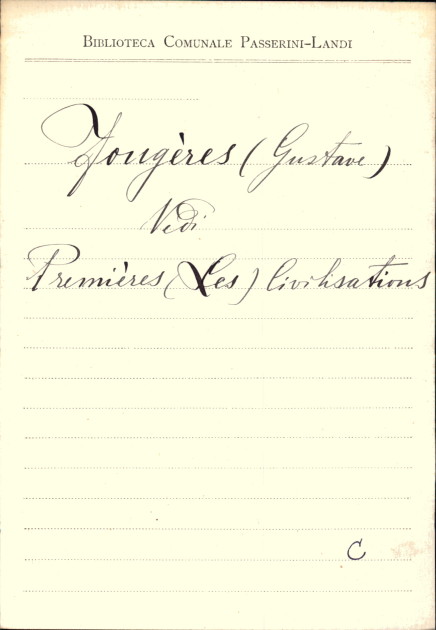 BIBLIOTECA COMUNALE PASSERINI-LANDI
Fougères (Gustave)
Vedi
Premières (Les) Civilisations
C